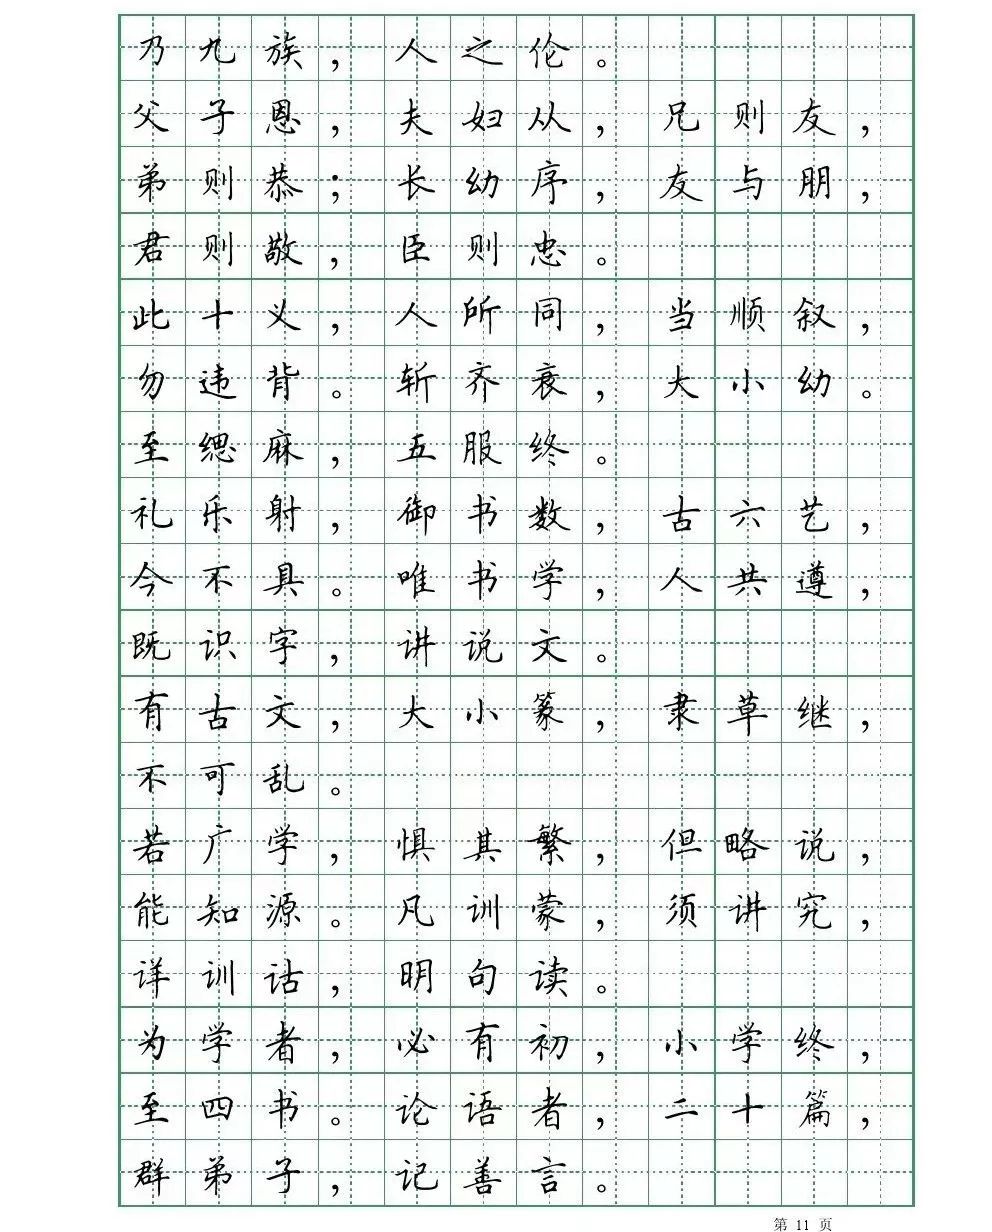 乃九族，人之伦。
父子恩，夫妇从，兄则友，
弟则恭；长幼序，友与朋，
君则敬，臣则忠。
此十义，人所同，当顺叙，
勿违背。斩齐衰，大小幼。
至缌麻，五服终。
礼乐射，御书数，古六艺，
今不具。唯书学，人共遵，
既识字，讲说文。
有古文，大小篆，隶草继，
不可乱。
若广学，惧其繁，但略说，
能知源。凡训蒙，须讲究，
详训诂，明句读。
为学者，必有初，小学终，
至四书。论语者，二十篇，
群弟子，记善言。
第 11 页